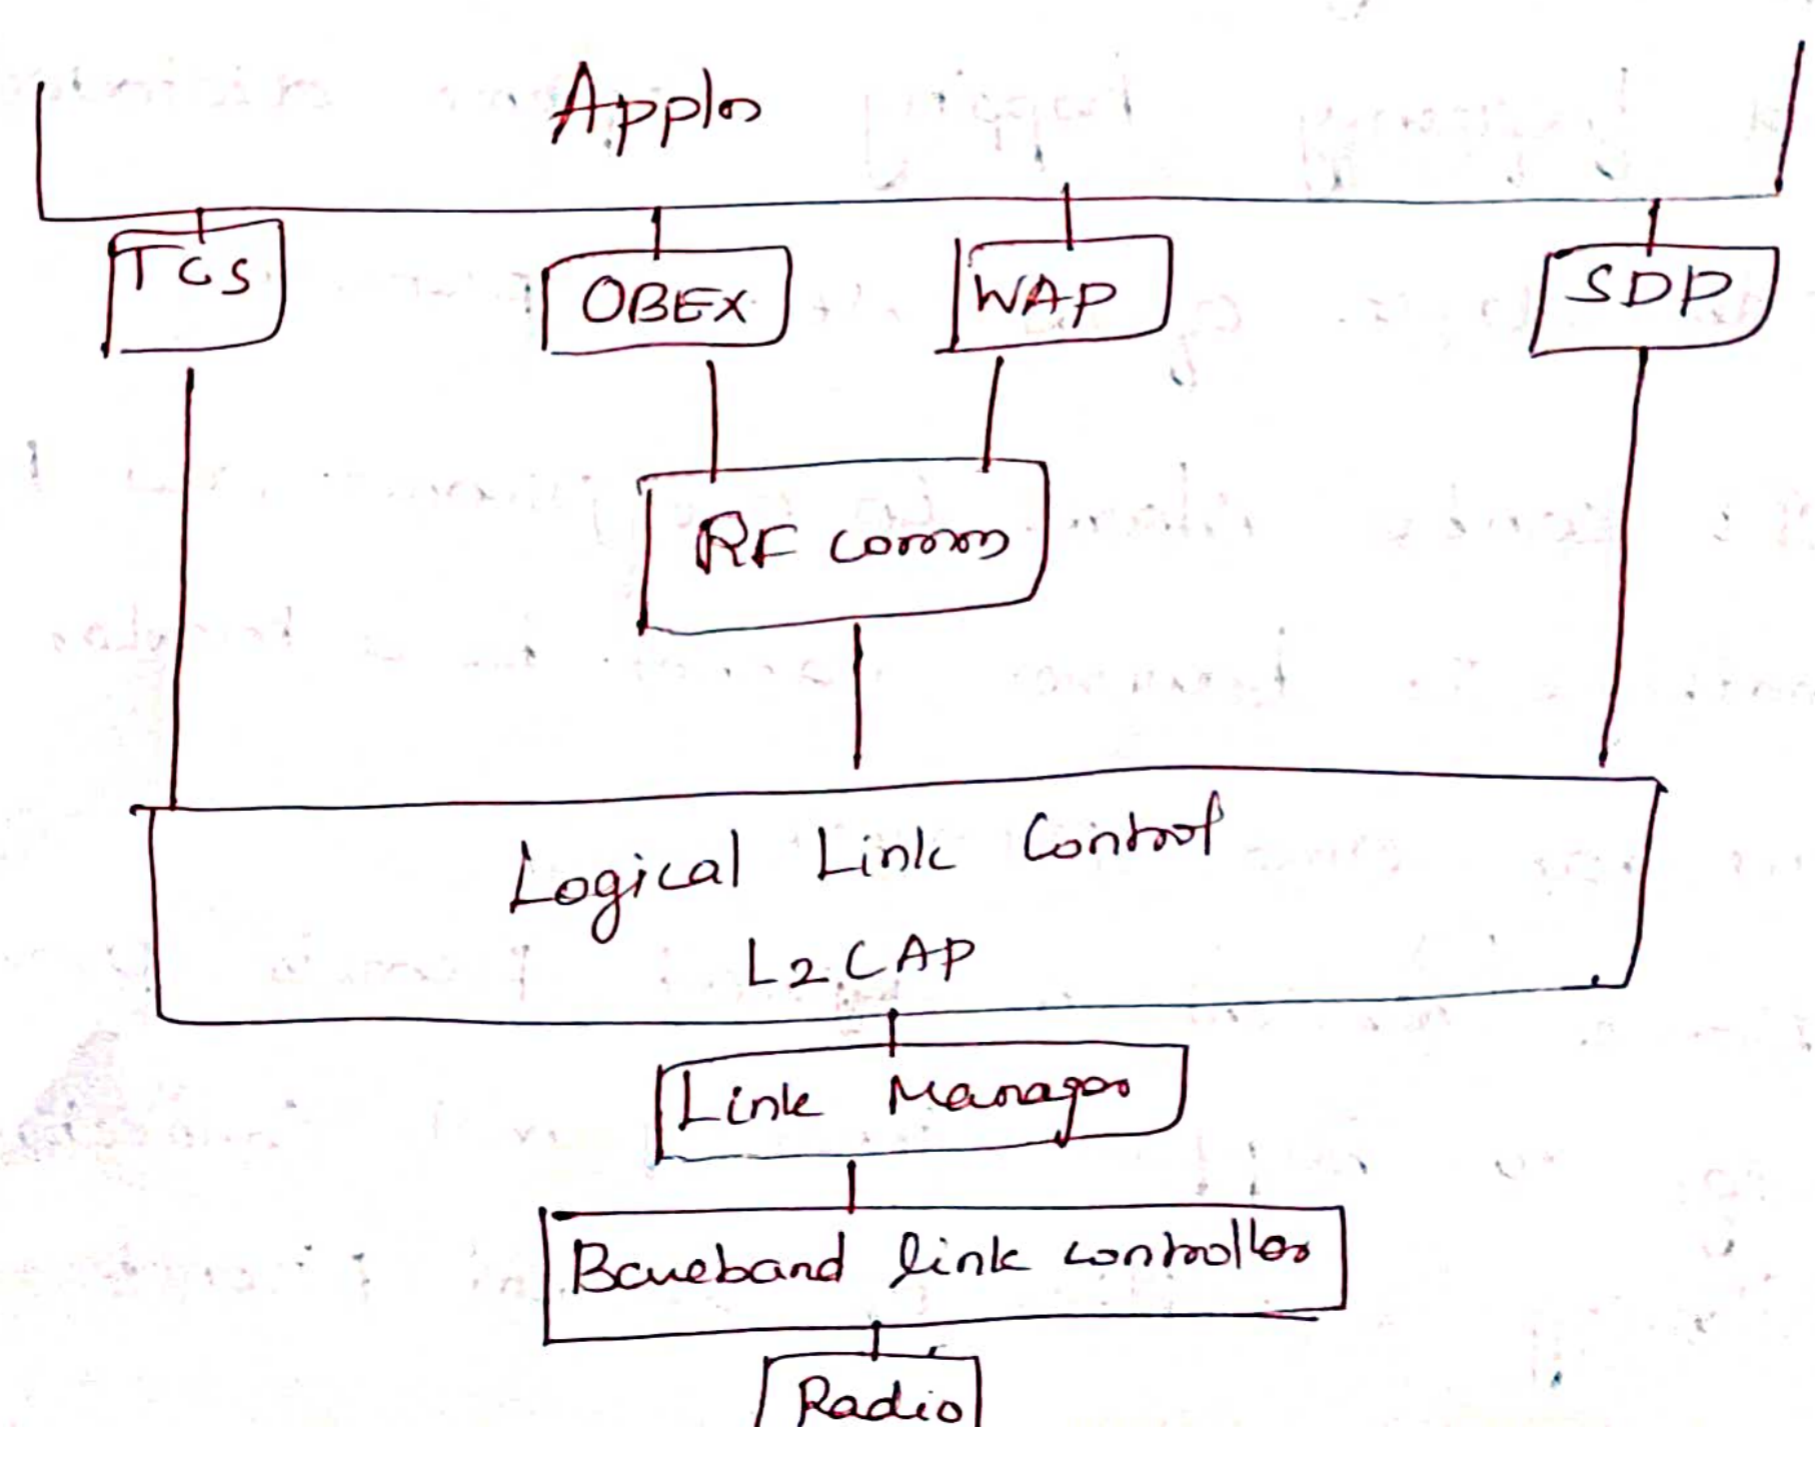 Applns
TCS OBEX WAP SDP
RF comm
Logical Link Control
L2CAP
Link Manager
Baseband link controller
Radio